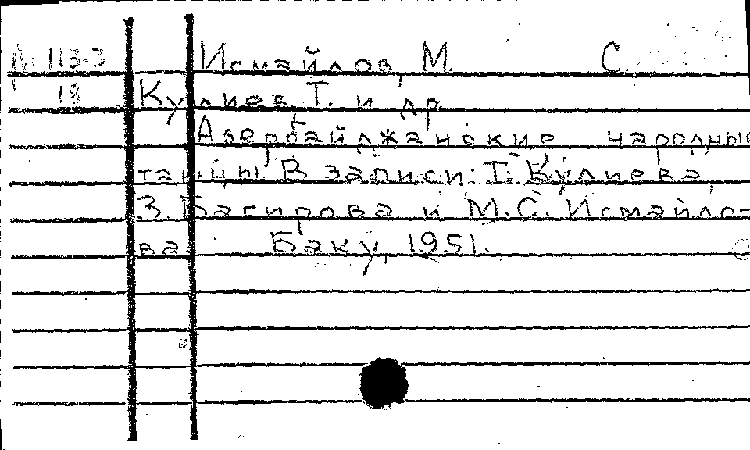 М 113-3 Исмайлов, М. С.
18 Кулиев Т. и др.
Азербайджанские народные
танцы В записи: Т. Кулиева,
З. Багирова и М.С. Исмайло-
ва Баку, 1951.